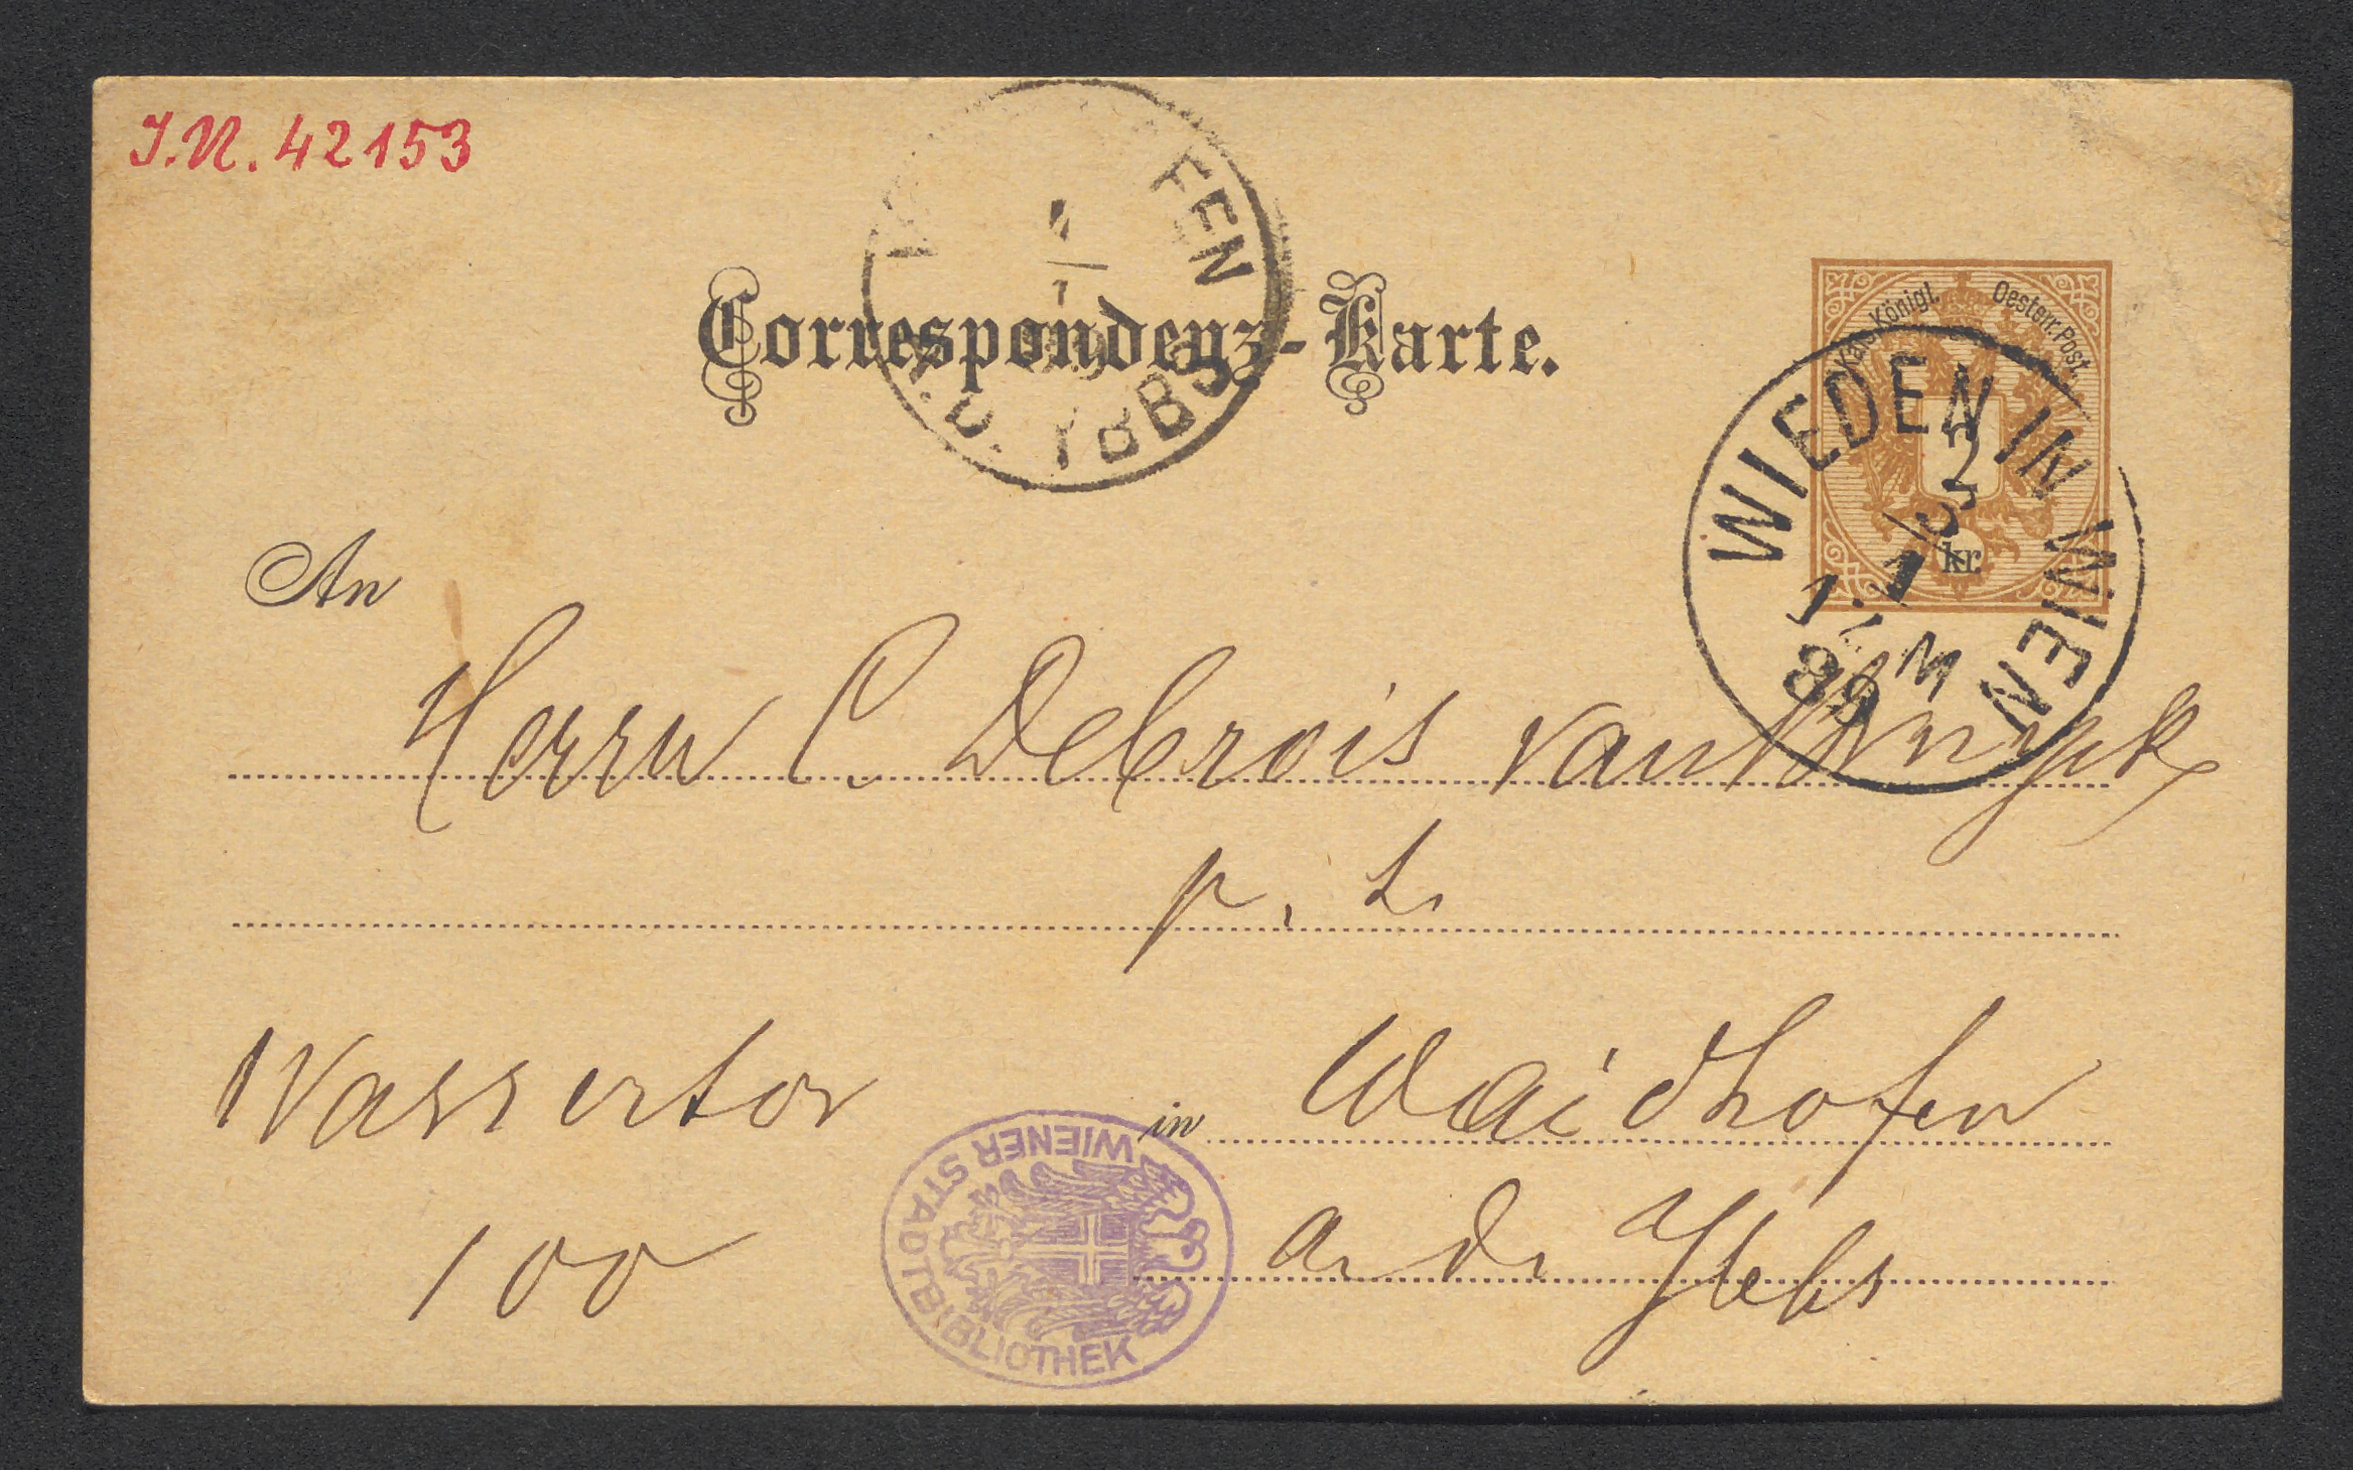 I.N. 42153
FEN
A.D. YBBS
Correspondenz-Karte.
Kais. Königl. Oesterr. Post.
kr.
WIEDEN IN WIEN
89
An
Herrn C. Debrois van Bruyck
Wassertor in Waidhofen
100 a. d. Ybbs
WIENER STADTBIBLIOTHEK